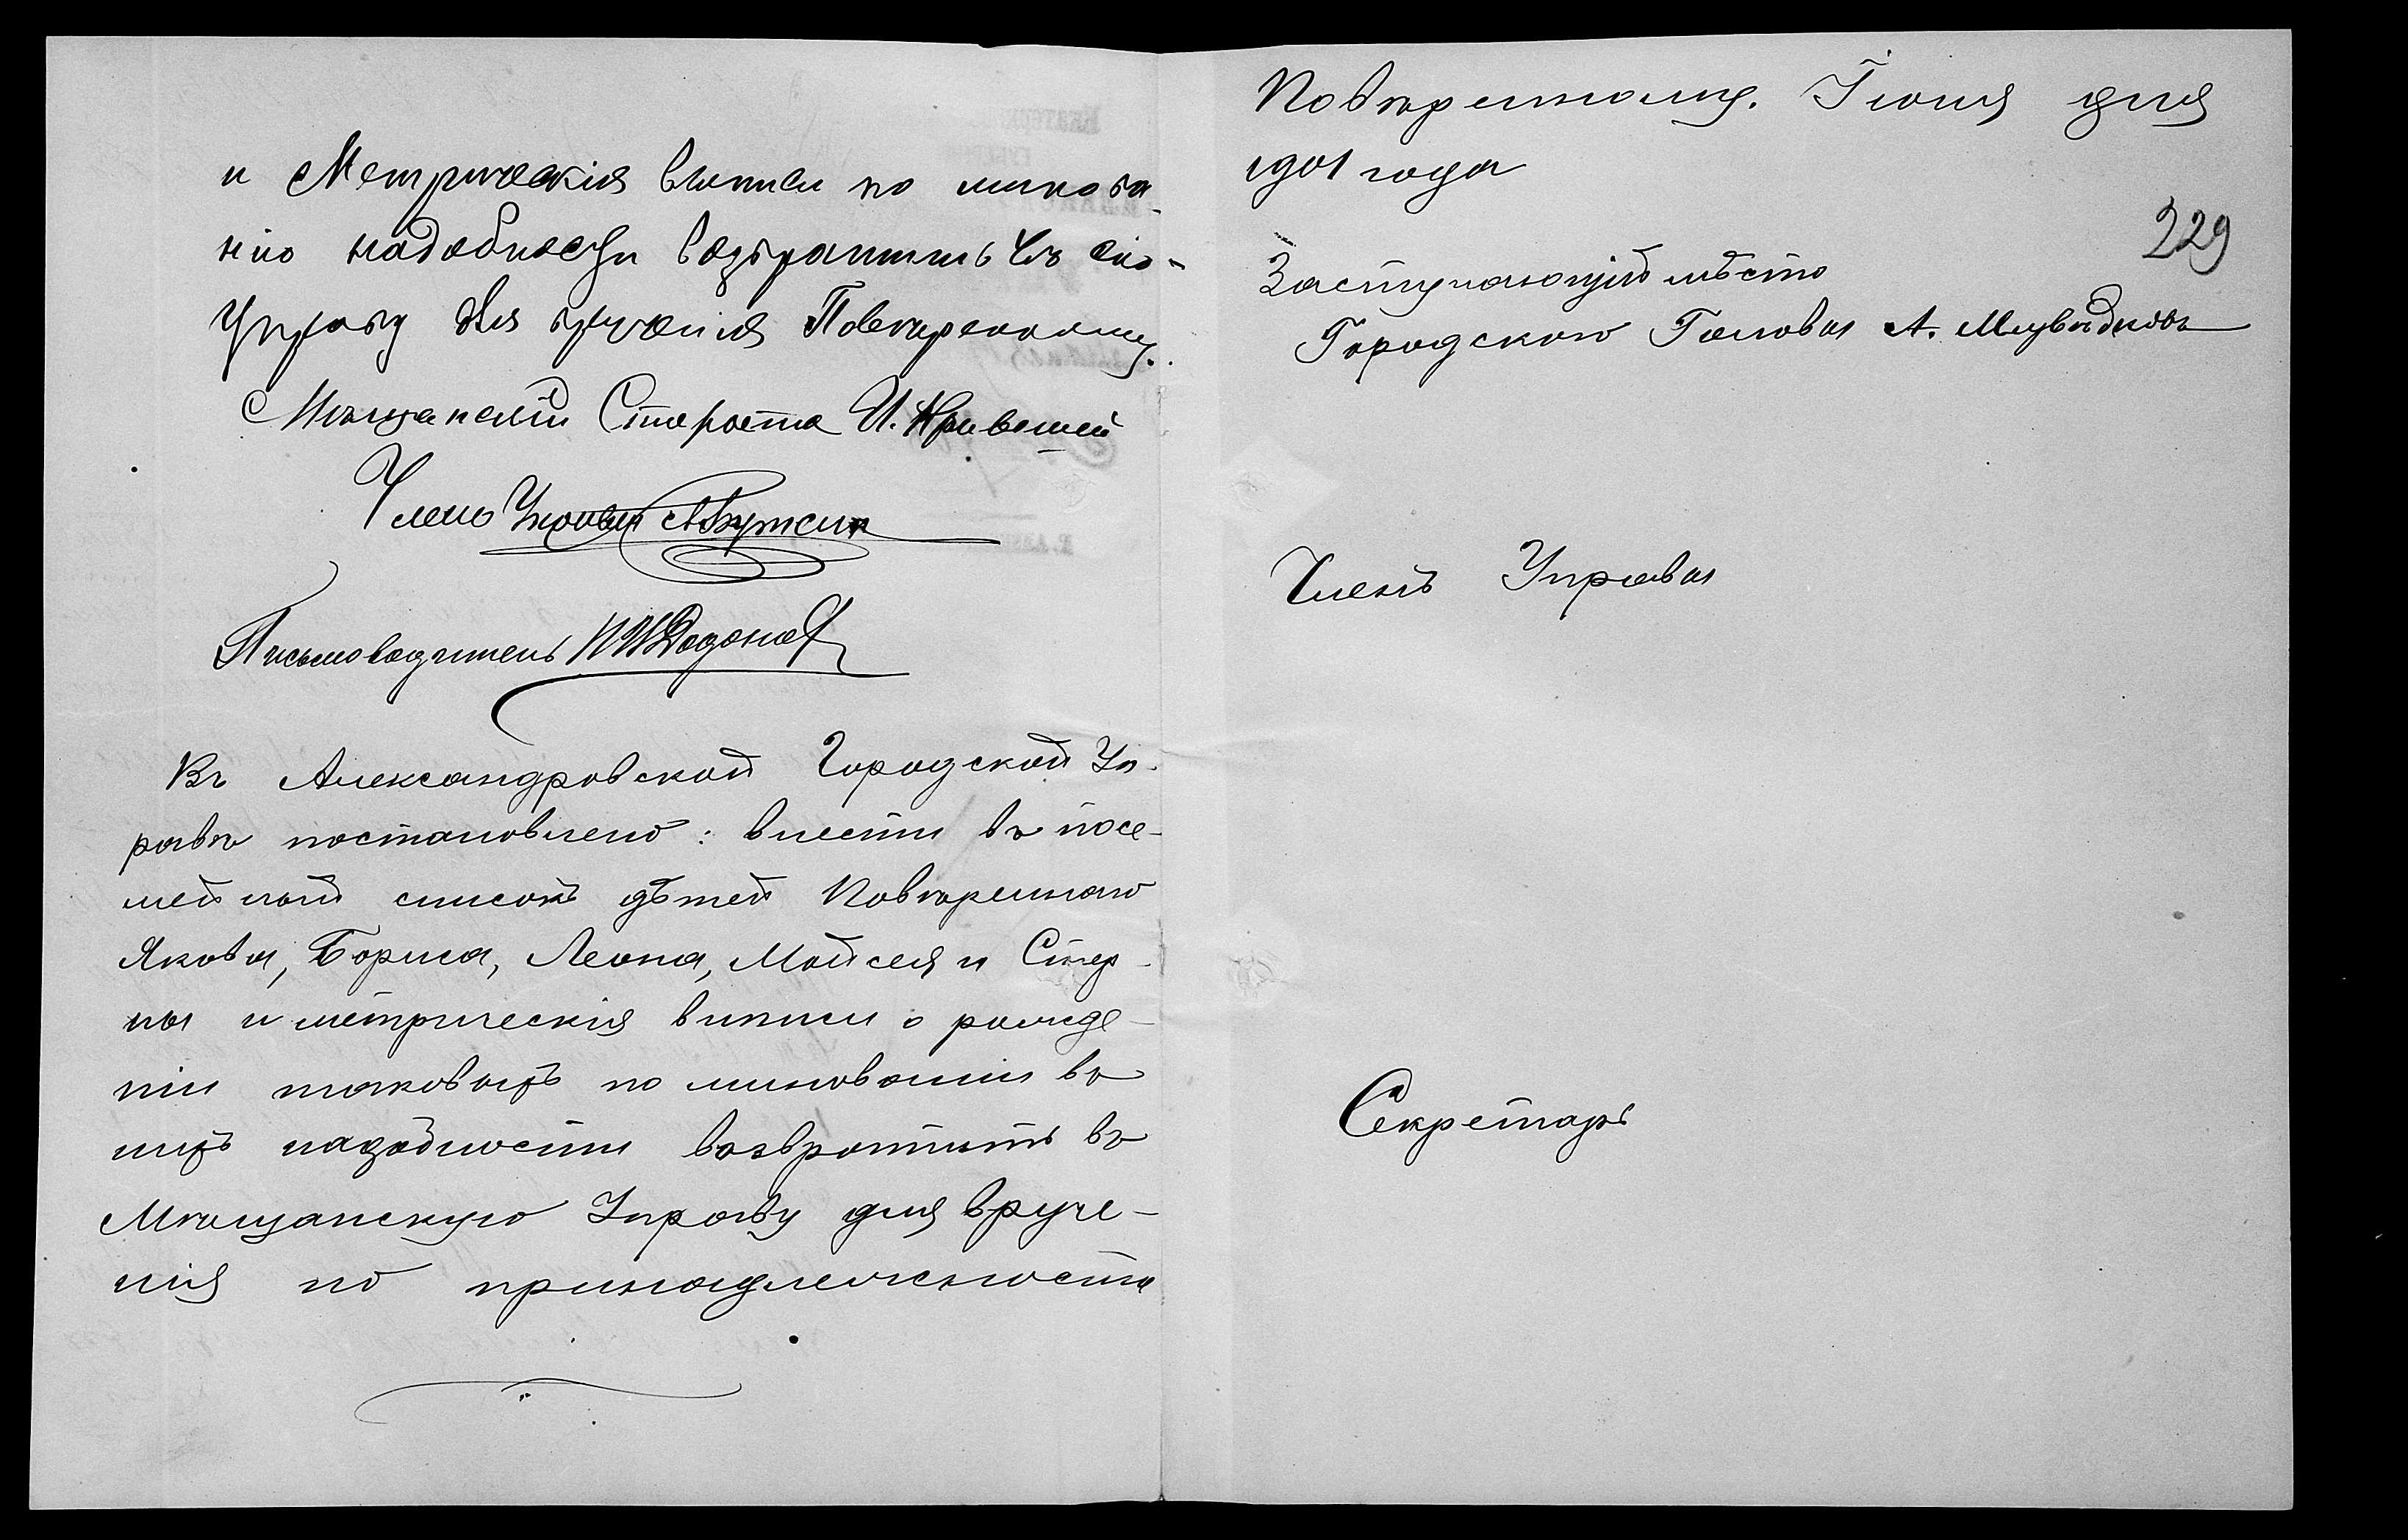 и Метрическія выписи по минова-
нію надобности возвратить въ сію-
Управу для врученія Повѣренному.
Мѣщанскій Староста И.
Членъ Управы
Письмоводитель
Въ Александровской Городской Уп-
равѣ постановлено: внести въ посе-
мейный списокъ дѣтей Повѣреннаго
Якова, Бориса, Леона, Мойсея и Стер-
ны и метрическія виписи о рожде-
ніи таковыхъ по минованіи въ
нихъ надобности возвратить въ
Мѣщанскую Управу для вруче-
нія по принадлежности
Повѣренному. Іюня дня
1901 года
229
Заступающій мѣсто
Городского Головы А. Медвѣдковъ
Членъ Управы
Секретарь